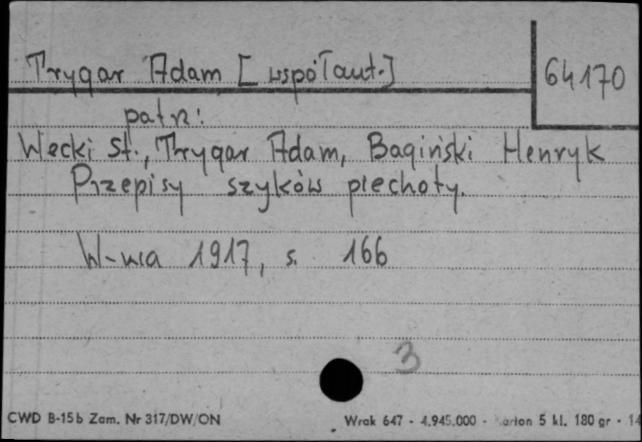 Trygar Adam [współaut.]
64170
patrz:
Wecki St., Trygar Adam, Bagiński Henryk
Przepisy szyków piechoty.
W-wa 1917, s. 166
3
CWD B-15b Zam. Nr 317/DW/ON
Wrak 647 - 4.945.000 - karton 5 kl. 180 gr - 1